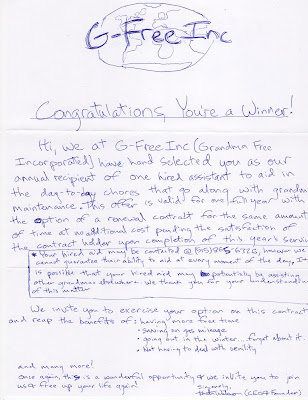 G-Free Inc
Congratulations, You're a Winner!
Hi, we at G-Free Inc (Grandma Free
Incorporated) have hand selected you as our
annual recipient of one hired assistant to aid in
the day-to-day chores that go along with grandma
maintenance. This offer is valid for one full year with
the option of a renewal contract for the same amount
of time at no additional cost pending the satisfaction of
the contract holder upon completion of this year's service
* Your hired aid may be contacted @ we
cannot guarantee their ability to aid at every moment of the day, It
is possible that your hired aid may be potentially assisting
other grandmas elsewhere. We thank you for your understanding
of this matter
We invite you to exercise your option on this contract
and reap the benefits of: having more free time
• saving on gas mileage
• going out in the winter... forget about it.
• Not having to deal with senility
and many more!
Once again this is a wonderful opportunity & we invite you to join
us & free up your life again!
(CEO & Founder)